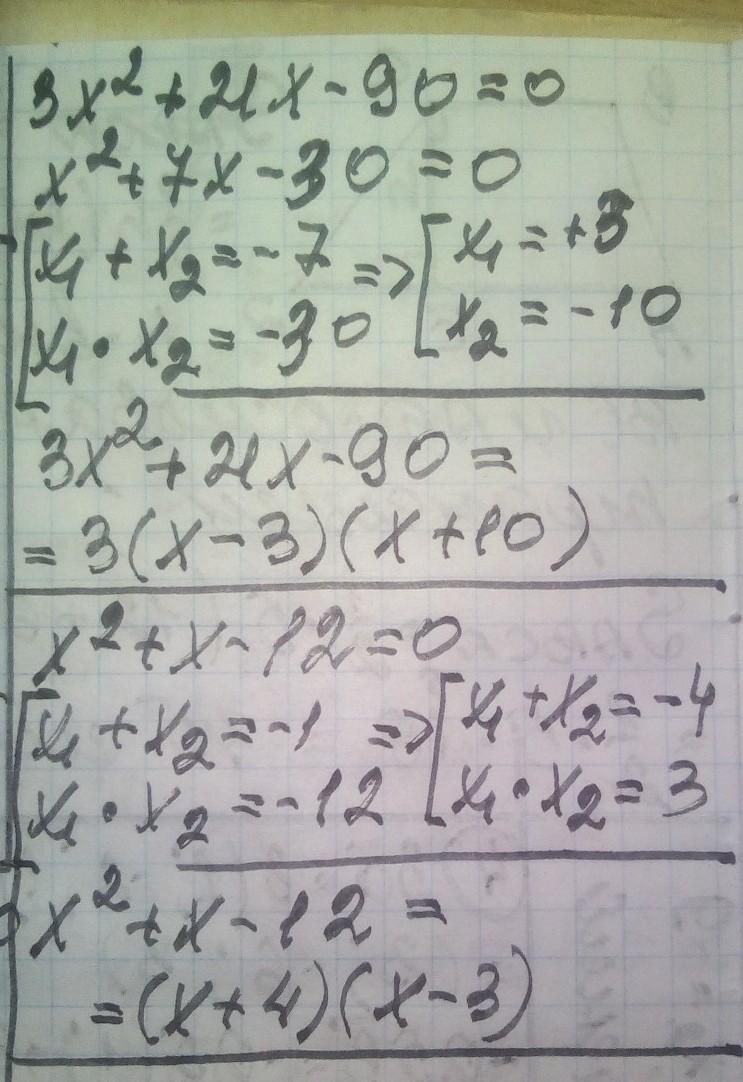 3x² + 21x - 90 = 0
x² + 7x - 30 = 0
[x₁ + x₂ = -7 => [x₁ = +3
x₁ · x₂ = -30 x₂ = -10
3x² + 21x - 90 =
= 3(x - 3)(x + 10)
x² + x - 12 = 0
[x₁ + x₂ = -1 => [x₁ + x₂ = -4
x₁ · x₂ = -12 x₁ · x₂ = 3
x² + x - 12 =
= (x + 4)(x - 3)